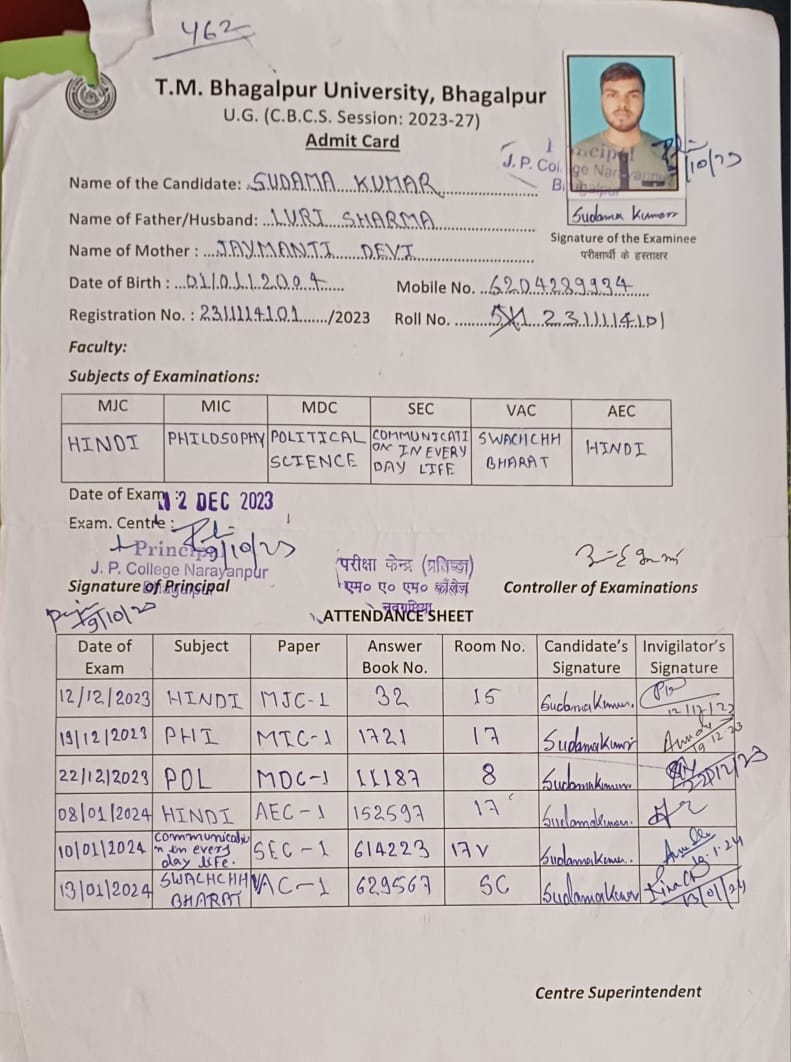 462
T.M. Bhagalpur University, Bhagalpur
U.G. (C.B.C.S. Session: 2023-27)
Admit Card
Principal
J. P. College Narayanpur
/10/23
Sudama Kumar
Signature of the Examinee
परीक्षार्थी के हस्ताक्षर
Name of the Candidate: SUDAMA KUMAR
Name of Father/Husband: LURI SHARMA
Name of Mother : JAYMANTI DEVI
Date of Birth : 01/01/2004 Mobile No. 6204289934
Registration No. : 231114101/2023 Roll No. 231114101
Faculty:
Subjects of Examinations:
MJC MIC MDC SEC VAC AEC
HINDI PHILOSOPHY POLITICAL SCIENCE COMMUNICATION IN EVERY DAY LIFE SWACHCHH BHARAT HINDI
Date of Exam 12 DEC 2023
Exam. Centre :
Principal
J. P. College Narayanpur
Signature of Principal
परीक्षा केन्द्र (प्रतिष्ठा)
एम० ए० एम० कॉलेज
नवगछिया
Controller of Examinations
ATTENDANCE SHEET
Date of Exam Subject Paper Answer Book No. Room No. Candidate's Signature Invigilator's Signature
12/12/2023 HINDI MJC-1 32 15 Sudama Kumar. 12/12/23
19/12/2023 PHI MIC-1 1721 17 Sudama Kumar 19.12.23
22/12/2023 POL MDC-1 11187 8 Sudama Kumar 22/12/23
08/01/2024 HINDI AEC-1 152597 17 Sudama Kumar.
10/01/2024 Communication in every day life. SEC-1 614223 17V Sudama Kumar. 10.1.24
13/01/2024 SWACHCHH BHARAT VAC-1 629567 SC Sudama Kumar 13/01/24
Centre Superintendent